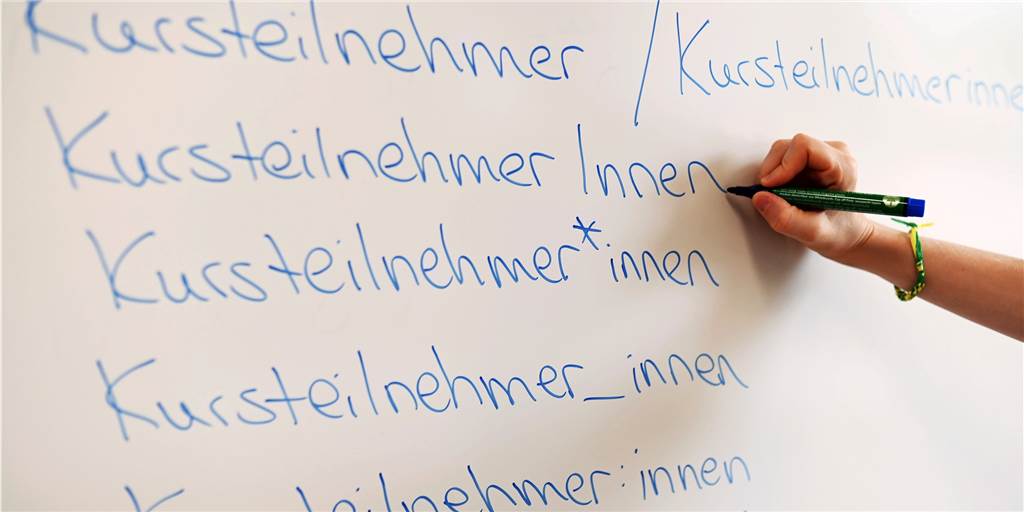 Kursteilnehmer / Kursteilnehmerinne
KursteilnehmerInnen
Kursteilnehmer*innen
Kursteilnehmer_innen
Kursteilnehmer:innen